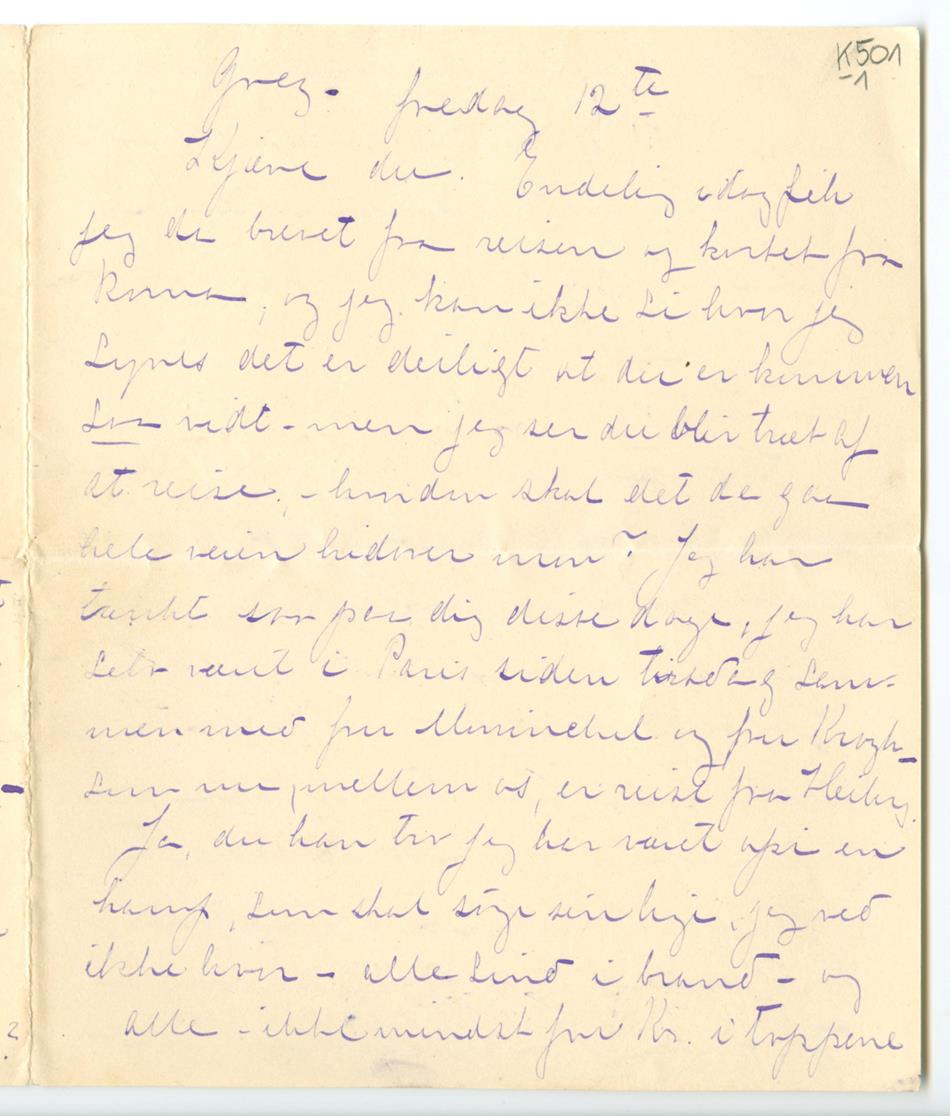 K501
-1
Grez. fredag 12te
Kjære du. Endelig idag fik
jeg da brevet fra reisen og kortet fra
Roma, og jeg kan ikke si hvor jeg
synes det er deiligt at du er kommen
saa vidt - men jeg ser du blir træt af
at reise, - hvordan skal det da gaa
hele veien hidover mon? Jeg har
tænkt saa paa dig disse dage, jeg har
selv været i Paris siden tirsdag sam-
men med fru og fru Krogh -
som nu, mellem os, er reist fra Heiberg.
Ja, du kan tro jeg har været oppi en
kamp, som skal søge sin lige, jeg ved
ikke hvor - alle sind i brand - og
alle - ikke mindst fru Kr. i toppene